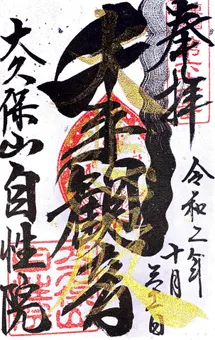 奉拝
令和二年
十月
大手観音
大久保山自性院